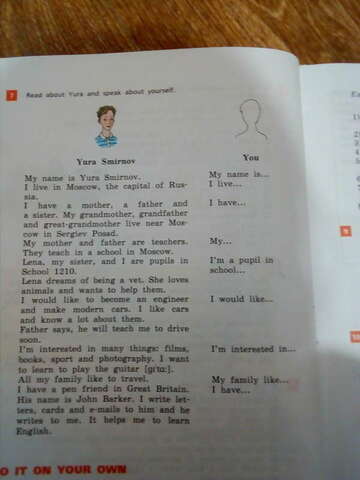 7 Read about Yura and speak about yourself.
Yura Smirnov You
My name is Yura Smirnov. My name is...
I live in Moscow, the capital of Rus- I live...
sia.
I have a mother, a father and I have...
a sister. My grandmother, grandfather
and great-grandmother live near Mos-
cow in Sergiev Posad.
My mother and father are teachers. My...
They teach in a school in Moscow.
Lena, my sister, and I are pupils in I'm a pupil in
School 1210. school...
Lena dreams of being a vet. She loves
animals and wants to help them.
I would like to become an engineer I would like...
and make modern cars. I like cars
and know a lot about them.
Father says, he will teach me to drive
soon.
I'm interested in many things: films, I'm interested in...
books, sport and photography. I want
to learn to play the guitar [gɪˈtɑː].
All my family like to travel. My family like...
I have a pen friend in Great Britain. I have...
His name is John Barker. I write let-
ters, cards and e-mails to him and he
writes to me. It helps me to learn
English.
O IT ON YOUR OWN